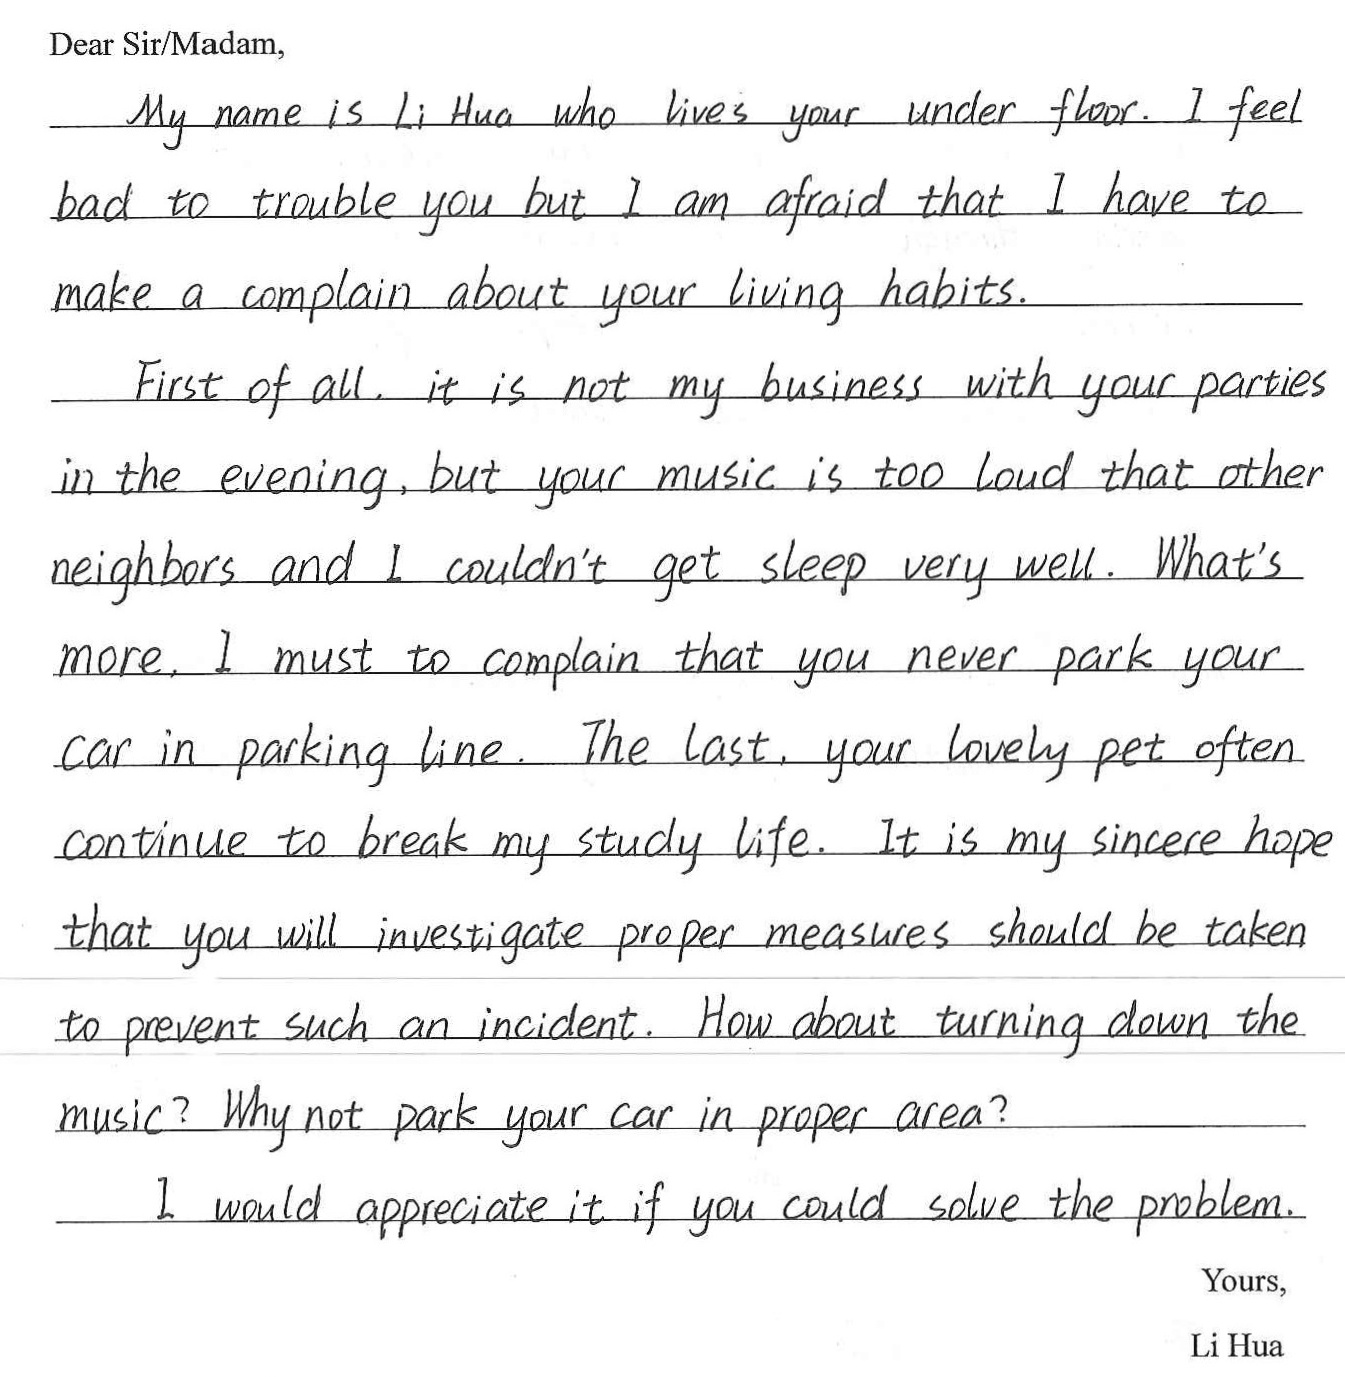 Dear Sir/Madam,
My name is Li Hua who lives your under floor. I feel
bad to trouble you but I am afraid that I have to
make a complain about your living habits.
First of all, it is not my business with your parties
in the evening, but your music is too loud that other
neighbors and I couldn't get sleep very well. What's
more, I must to complain that you never park your
car in parking line. The last, your lovely pet often
continue to break my study life. It is my sincere hope
that you will investigate proper measures should be taken
to prevent such an incident. How about turning down the
music? Why not park your car in proper area?
I would appreciate it if you could solve the problem.
Yours,
Li Hua